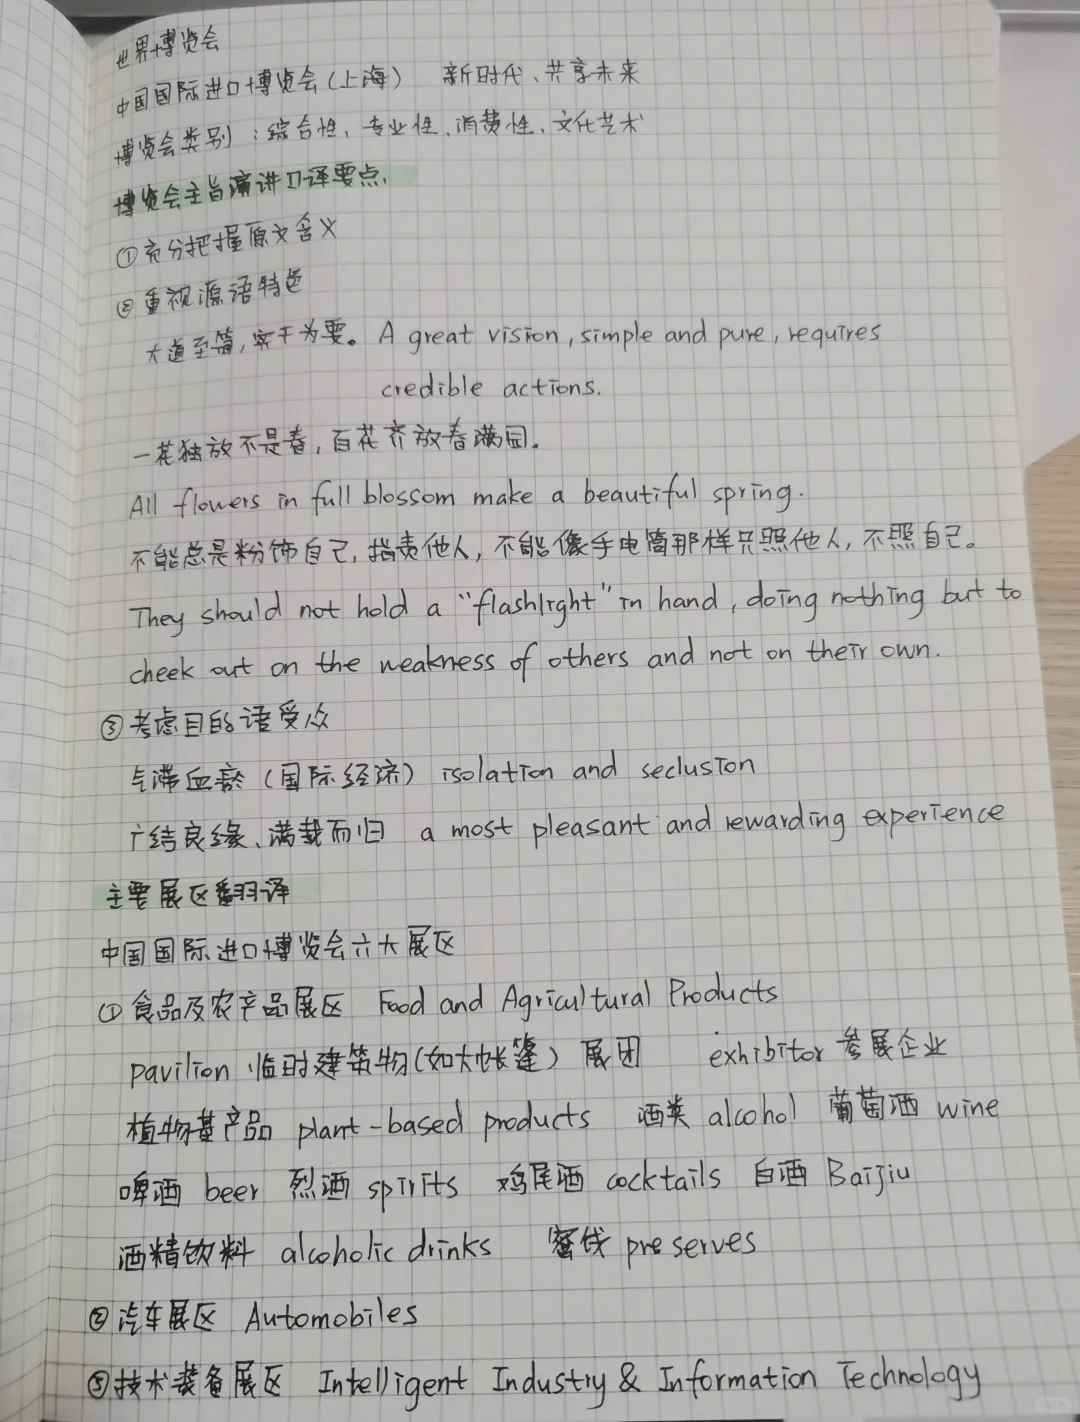 世界博览会
中国国际进口博览会(上海) 新时代、共享未来
博览会类别:综合性、专业性、消费性、文化艺术
博览会主旨演讲口译要点.
①充分把握原文含义
②重视源语特色
大道至简,实干为要。A great vision, simple and pure, requires
credible actions.
一花独放不是春,百花齐放春满园。
All flowers in full blossom make a beautiful spring.
不能总是粉饰自己,指责他人,不能像手电筒那样只照他人,不照自己。
They should not hold a "flashlight" in hand, doing nothing but to
cheek out on the weakness of others and not on their own.
③考虑目的语受众
气滞血瘀(国际经济) isolation and seclusion
广结良缘、满载而归 a most pleasant and rewarding experience
主要展区翻译
中国国际进口博览会六大展区
①食品及农产品展区 Food and Agricultural Products
pavilion 临时建筑物(如大帐篷) 展团 exhibitor 参展企业
植物基产品 plant-based products 酒类 alcohol 葡萄酒 wine
啤酒 beer 烈酒 spirits 鸡尾酒 cocktails 白酒 Baijiu
酒精饮料 alcoholic drinks 蜜饯 preserves
②汽车展区 Automobiles
③技术装备展区 Intelligent Industry & Information Technology